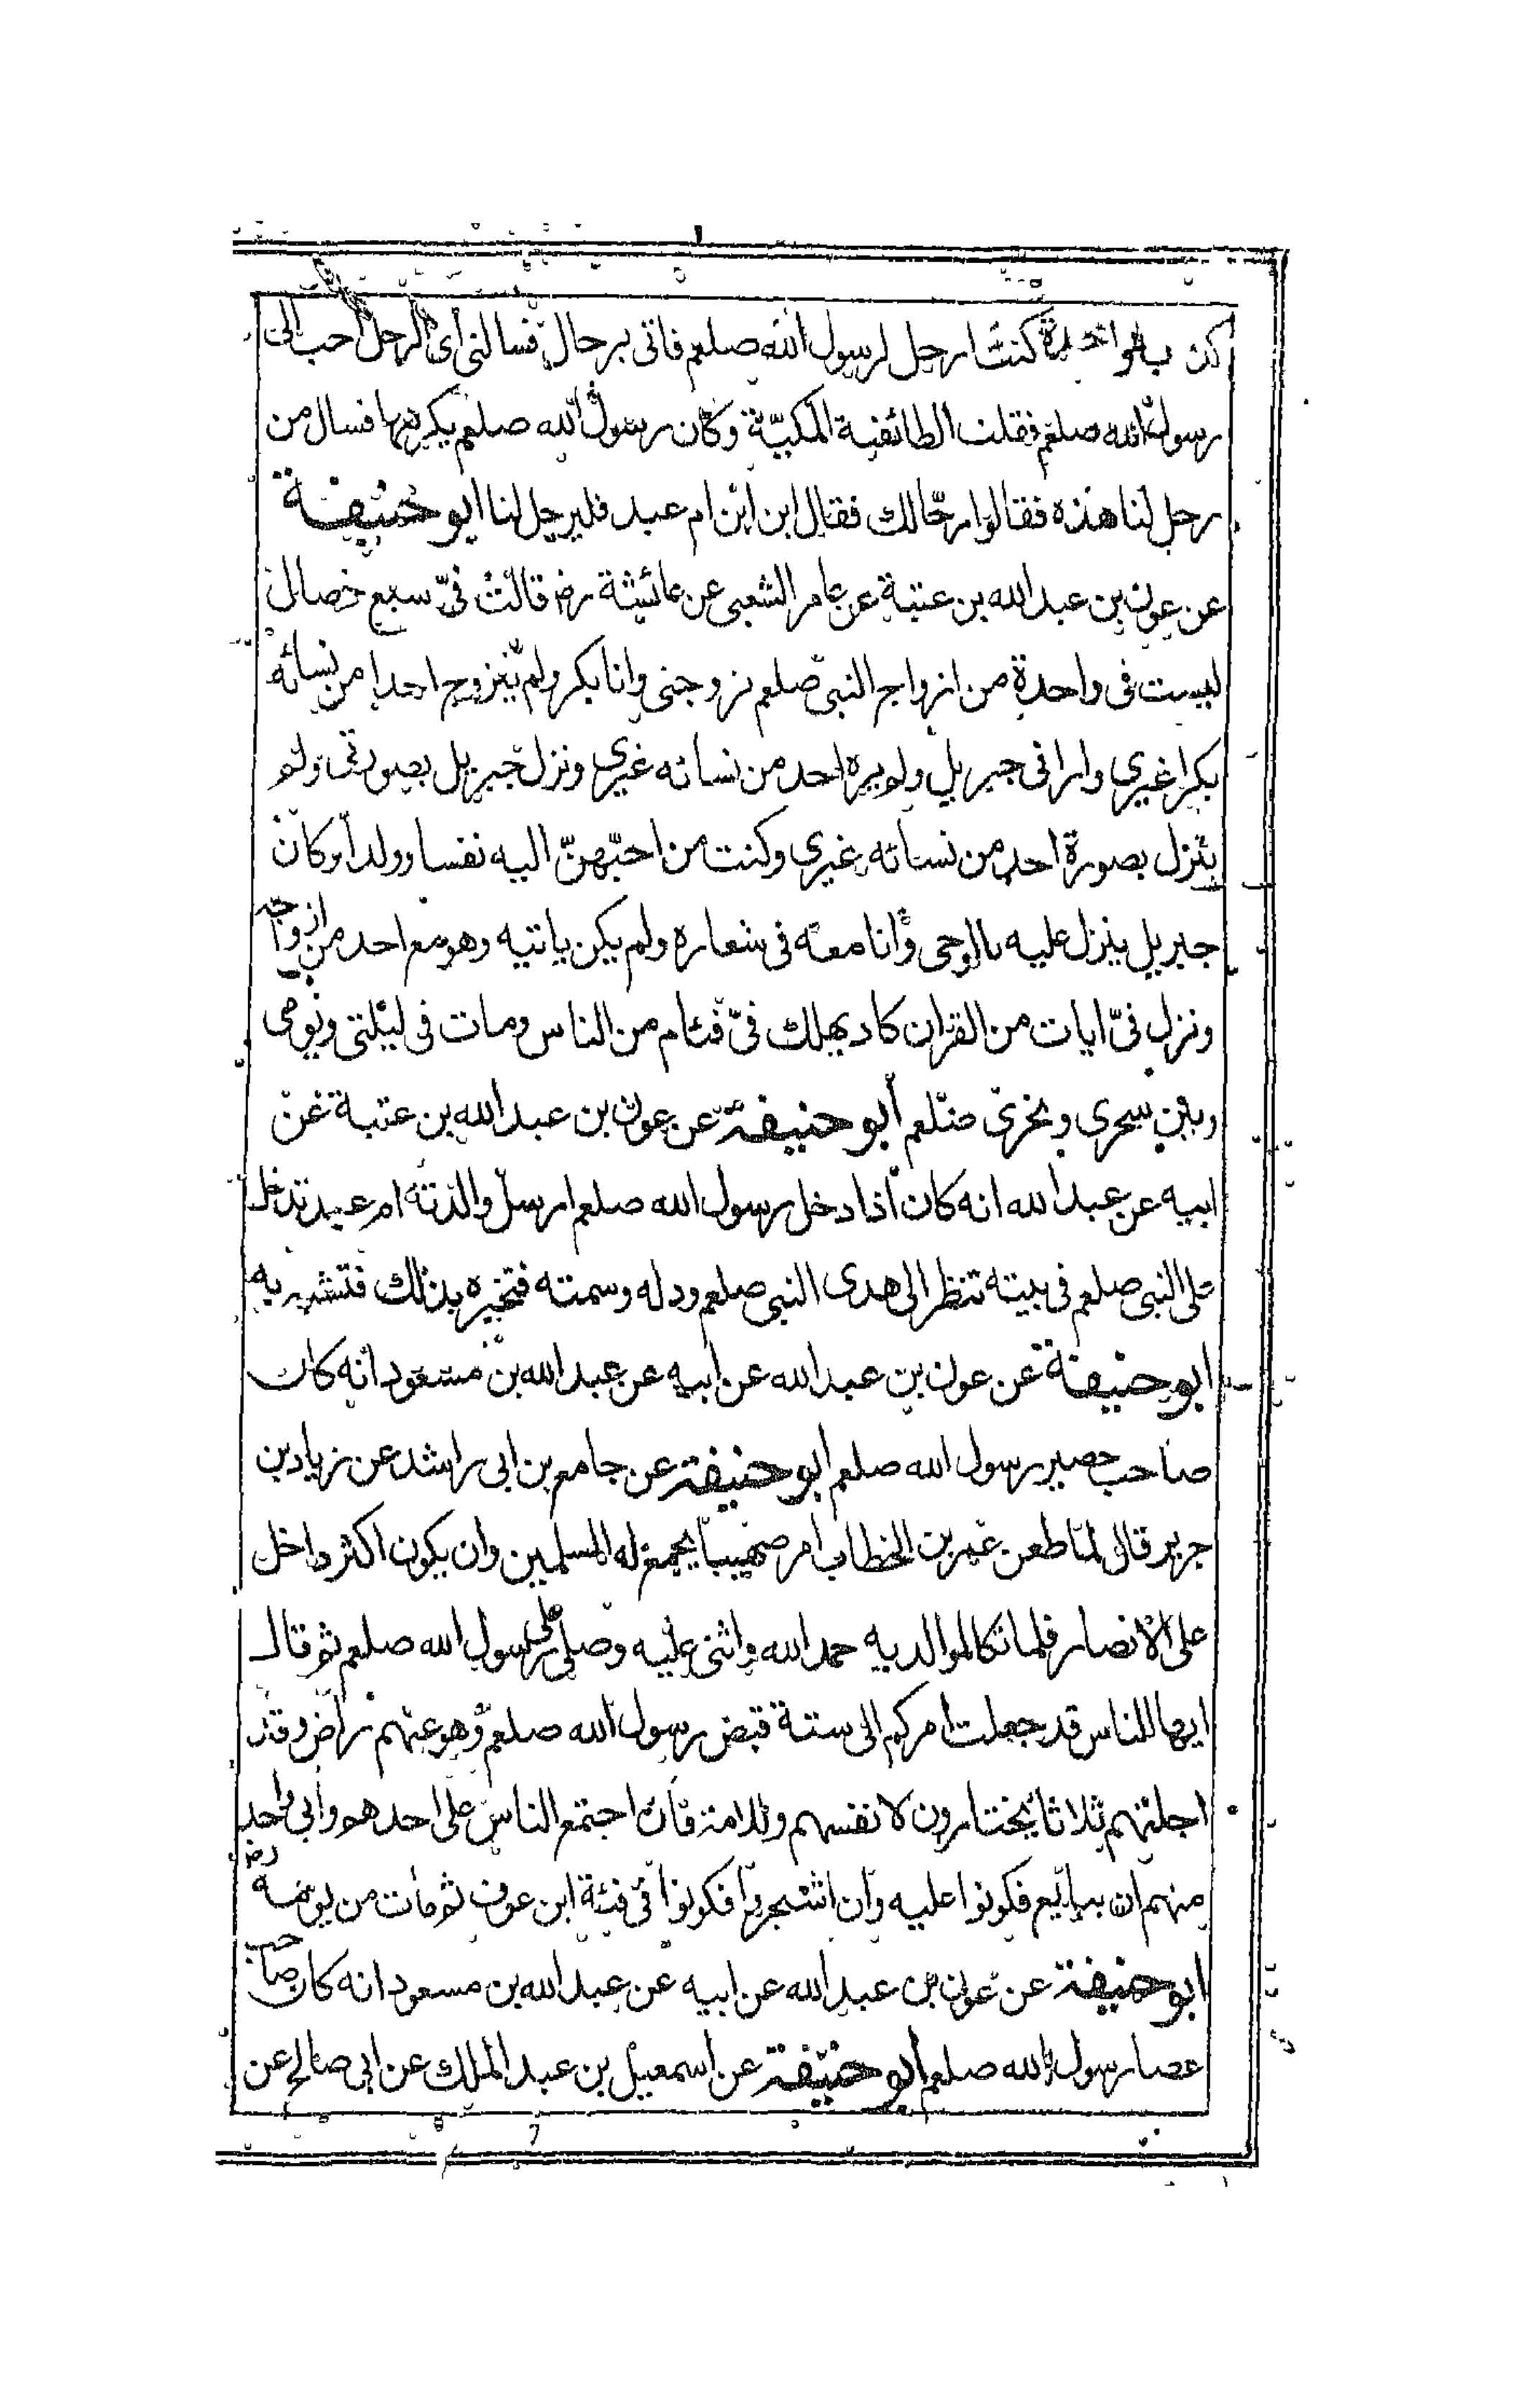 كذبت الا واحدة كنت ارحل لرسول الله صلعم فاتى برحال فسالنى اى الرحل احب الى
رسول الله صلعم فقلت الطائفية المكية وكان رسول الله صلعم يكرهها فسال من
رحل لنا هذه فقالوا رحالك فقال ابن ابن ام عبد فليرحل لنا ابو حنيفة
عن عون بن عبد الله بن عتبة عن عامر الشعبى عن عائشة رض قالت فىّ سبع خصال
ليست فى واحدة من ازواج النبى صلعم تزوجنى وانا بكر ولم يتزوج احدا من نسائه
بكرا غيرى وارانى جبريل ولم يره احد من نسائه غيرى ونزل جبريل بصورتى ولم
ينزل بصورة احد من نسائه غيرى وكنت من احبهنّ اليه نفسا وولدا وكان
جبريل ينزل عليه بالوحى وانا معه فى شعاره ولم يكن ياتيه وهو مع احد من ازواجه
ونزل فىّ ايات من القران كاد يهلك فىّ فئام من الناس ومات فى ليلتى ويومى
وبين سحرى ونحرى صلعم ابو حنيفة عن عون بن عبد الله بن عتبة عن
ابيه عن عبد الله انه كان اذا دخل رسول الله صلعم ارسل والدته ام عبد تدخل
على النبى صلعم فى بيته تنظر الى هدى النبى صلعم ودله وسمته فتخبره بذلك فتشبه به
ابو حنيفة عن عون بن عبد الله عن ابيه عن عبد الله بن مسعود انه كان
صاحب حصير رسول الله صلعم ابو حنيفة عن جامع بن ابى راشد عن زياد بن
جرير قال لما طعن عمر بن الخطاب امر صهيبا يجمع له المسلمين وان يكون اكثر داخل
على الانصار فلما تكالموا لديه حمد الله واثنى عليه وصلى على رسول الله صلعم ثم قال
ايها الناس قد جعلت امركم الى ستة قبض رسول الله صلعم وهو عنهم راض وقد
اجلتهم ثلاثا يختارون لانفسهم وللامة فان اجتمع الناس على احدهم وابى واحد
منهم ان يبايع فكونوا عليه وان اشتجروا فكونوا فى فئة ابن عوف ثم مات من يومه رض
ابو حنيفة عن عون بن عبد الله عن ابيه عن عبد الله بن مسعود انه كان صاحب
عصا رسول الله صلعم ابو حنيفة عن اسمعيل بن عبد الملك عن ابى صالح عن